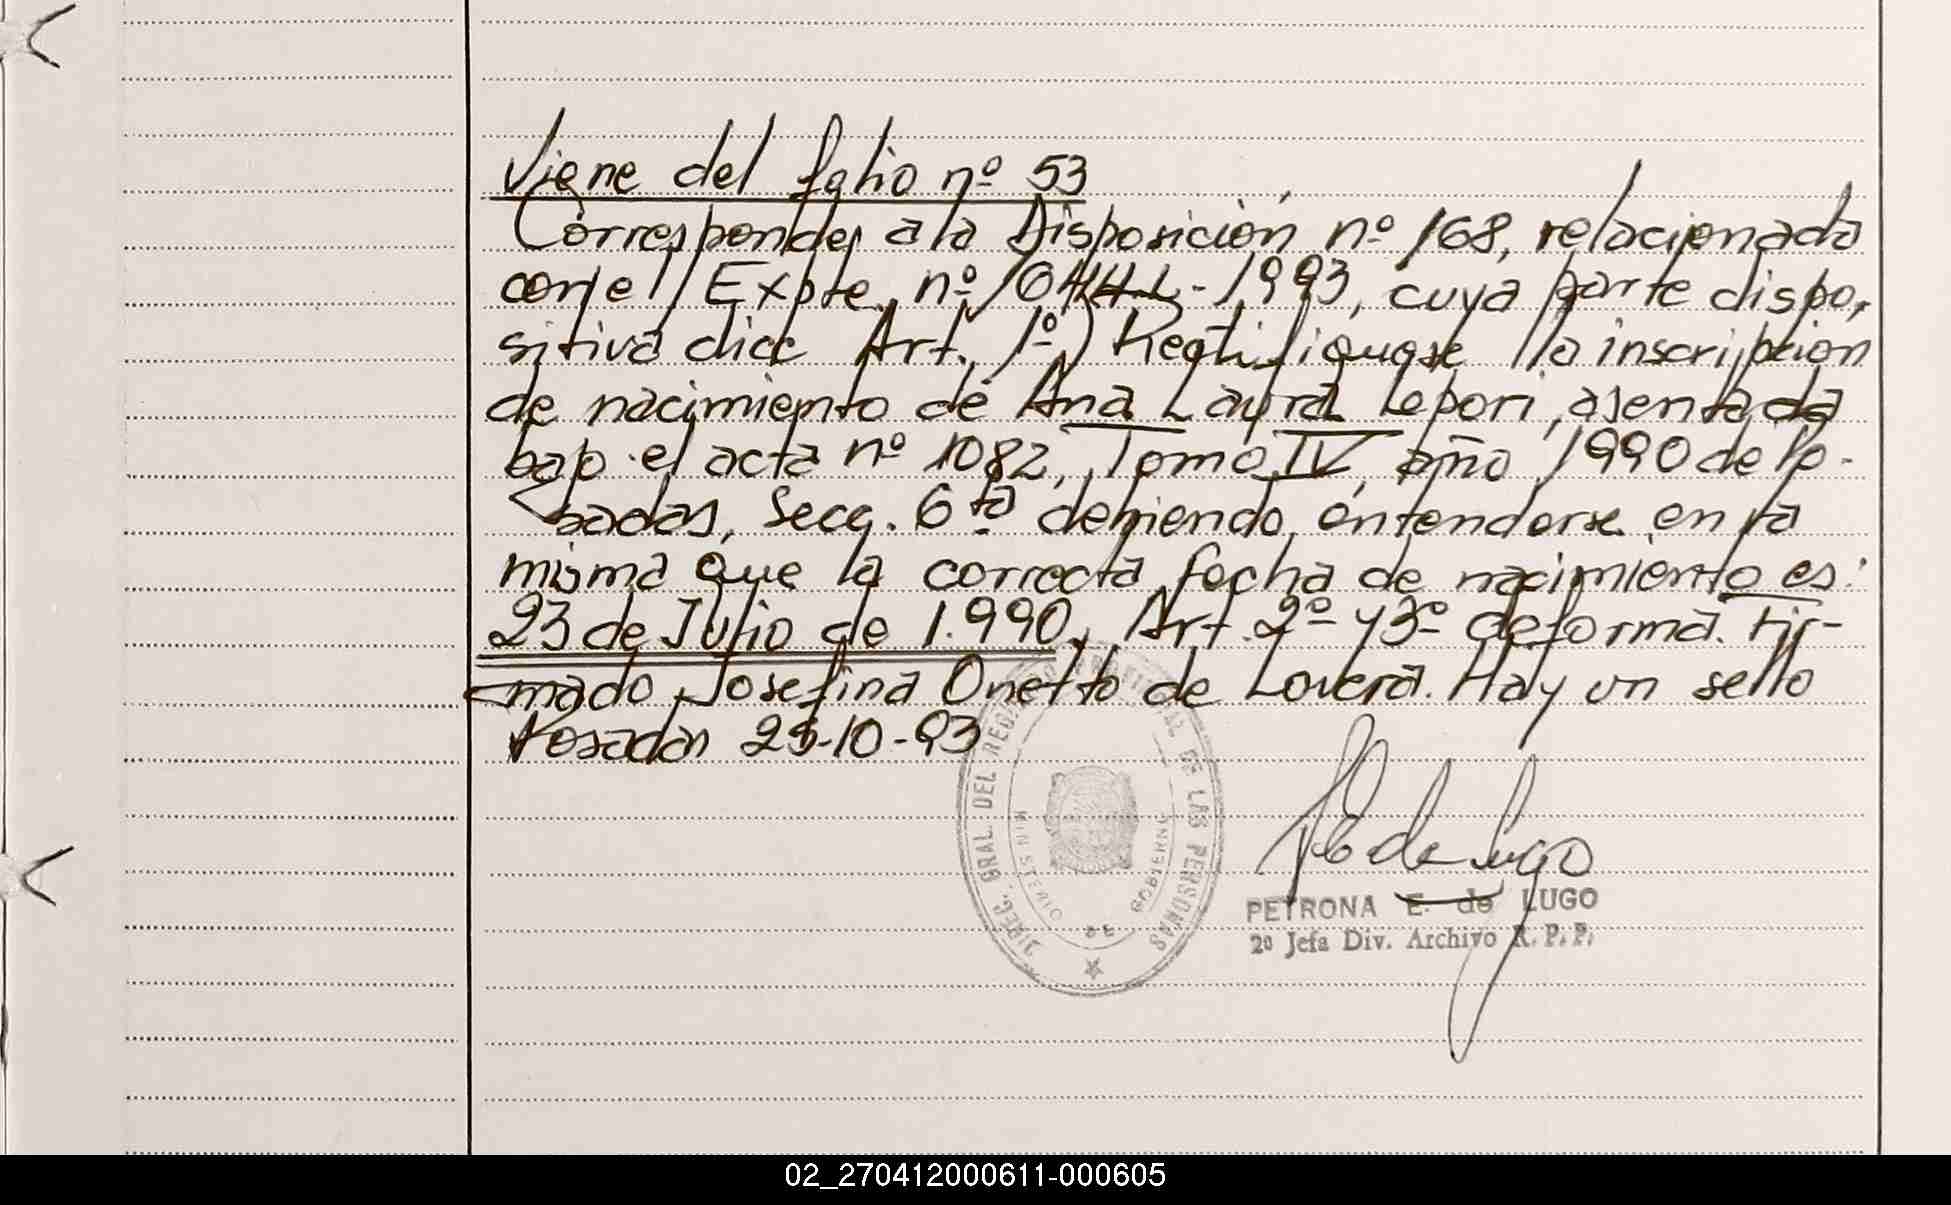 Viene del folio nº 53
Corresponde, a la Disposición nº 168, relacionada
con el Expte. nº 1044-L-1993, cuya parte dispo,
sitiva dice Art. 1º) Rectifiquese la inscripcion
de nacimiento de Ana Laura Lepori, asentada
bajo el acta nº 1082, Tomo IV, año 1990 de Po-
sadas, Secc. 6ta debiendo entenderse en la
misma que la correcta fecha de nacimiento es:
23 de Julio de 1.990, Art. 2º y 3º de forma. Fir-
mado Josefina Onetto de Lovera. Hay un sello
Posadas 25-10-93
DIREC. GRAL. DEL REGISTRO PROVINCIAL DE LAS PERSONAS
MINISTERIO DE GOBIERNO
PE de Lugo
PETRONA E. de LUGO
2º Jefa Div. Archivo R. P. P.
02_270412000611-000605